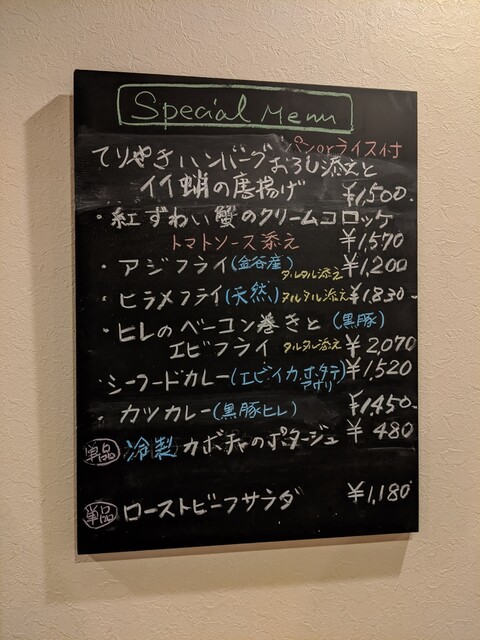 Special Menu
パンorライス付
てりやきハンバーグおろし添えと
イイ蛸の唐揚げ ¥1,500.
・紅ずわい蟹のクリームコロッケ
トマトソース添え ¥1,570
・アジフライ(金谷産) タルタル添え ¥1,200
・ヒラメフライ(天然) タルタル添え ¥1,830.
・ヒレのベーコン巻きと(黒豚)
エビフライ タルタル添え ¥2,070
・シーフードカレー(エビ、イカ、ホタテ、アサリ) ¥1,520
・カツカレー(黒豚ヒレ) ¥1,450.
単品 冷製カボチャのポタージュ ¥480
単品 ローストビーフサラダ ¥1,180